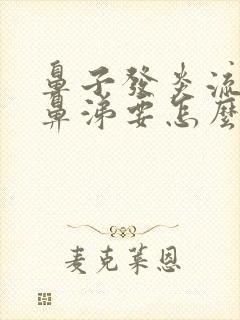 鼻子發炎流
鼻涕要怎麼
麦克莱恩